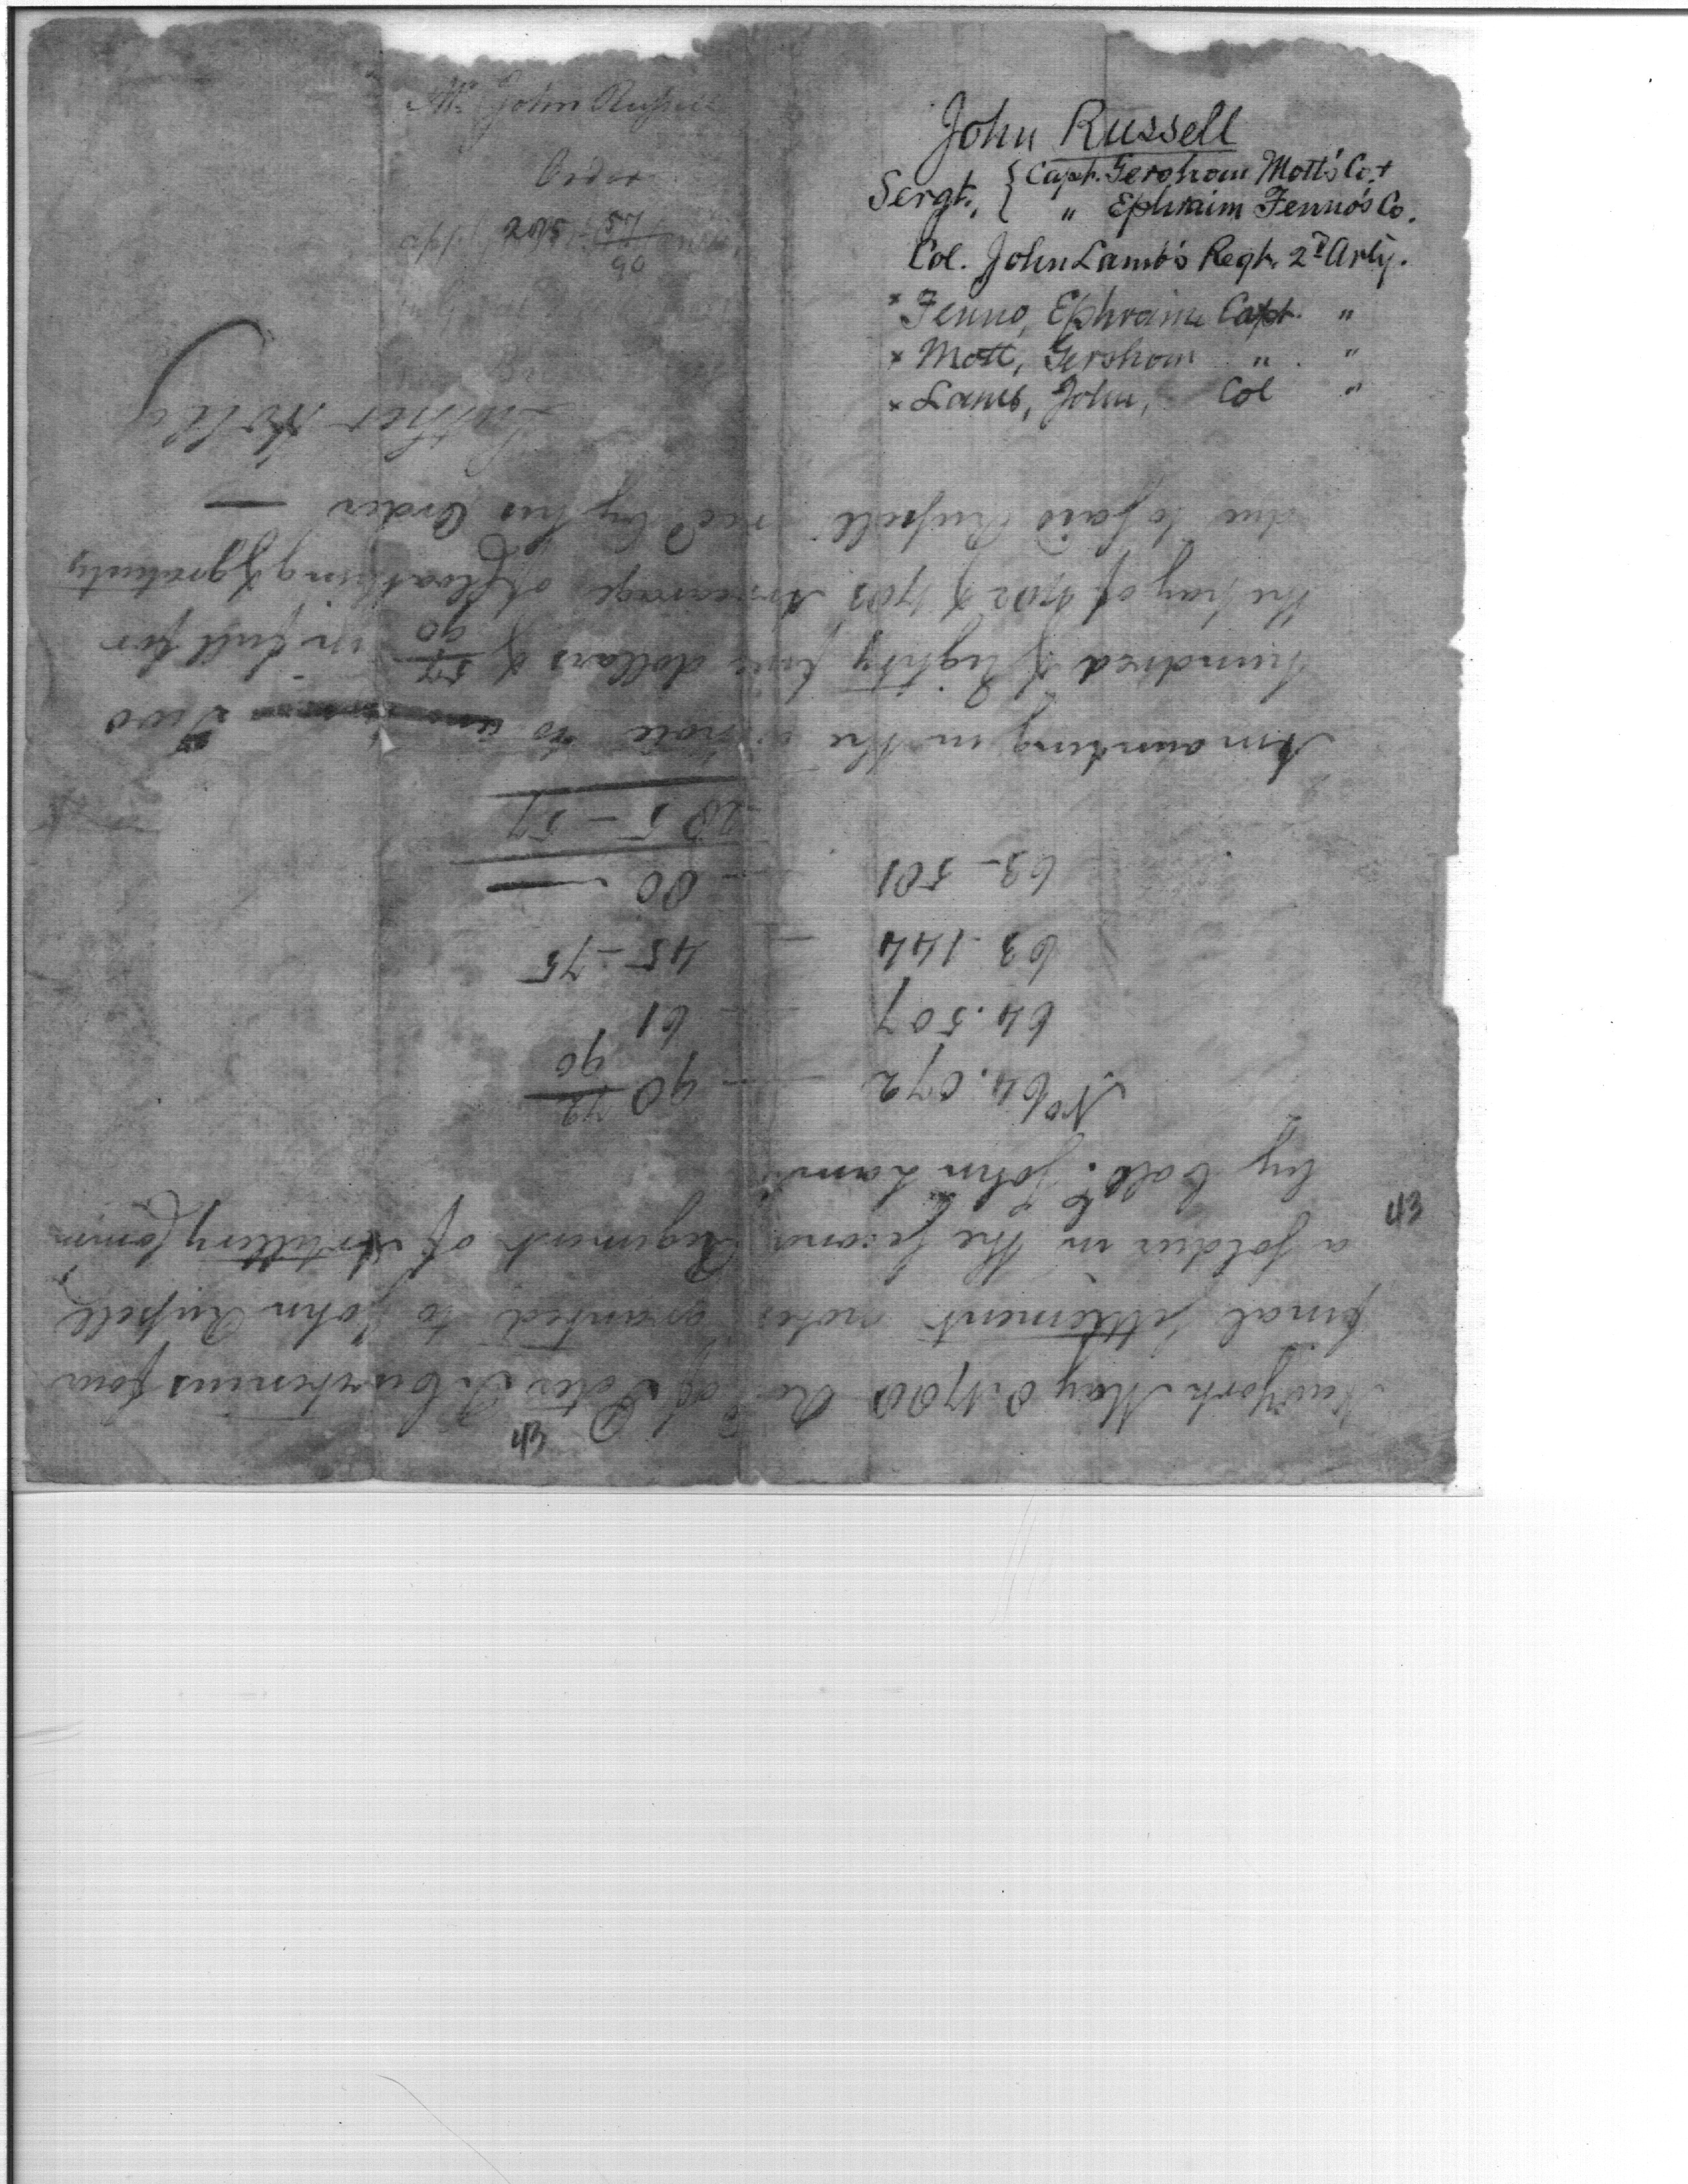 John Russell
Sergt. { Capt. Gershom Mott's Co. +
" Ephraim Fenno's Co.
Col. John Lamb's Regt. 2d Arty.
x Fenno, Ephraim Capt. "
x Mott, Gershom " "
x Lamb, John, Col "
Mr. John Russell
order
43
New York May 8. 1788 Recd of Peter T. Curtenius four
final settlement notes granted to John Russell
a soldier in the second Regiment of Artillery
43
by Colo. John Lamb
No. 64.072 — 90 72/90
64.507 — 61
63-144 — 45-75
63-501 — 88 —
285-57
Amounting in the whole to Two
hundred & Eighty five dollars & 57/90 in full for
the pay of 1782 & 1783 Arrearages of Cloathing & gratuity
due to said Russell recd by his Order —
Luther